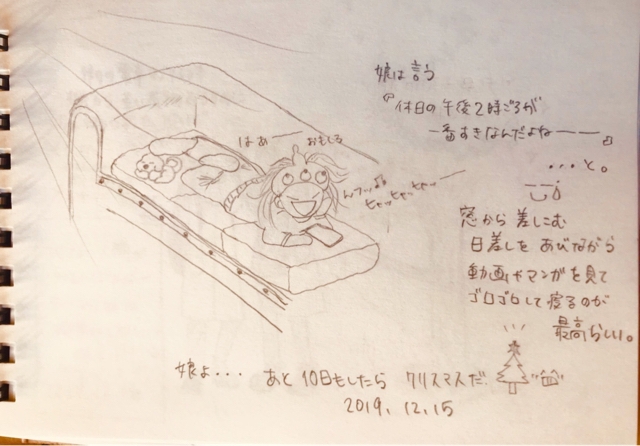 娘は言う
『休日の午後2時ごろが
一番すきなんだよねーーー』
...と。
はあーー おもしろ
んフッ♪♪
ヒャッヒャッヒャッ
窓から差しこむ
日差しをあびながら
動画やマンガを見て
ゴロゴロして寝るのが
最高らしい。
娘よ... あと10日もしたら クリスマスだ。
2019.12.15